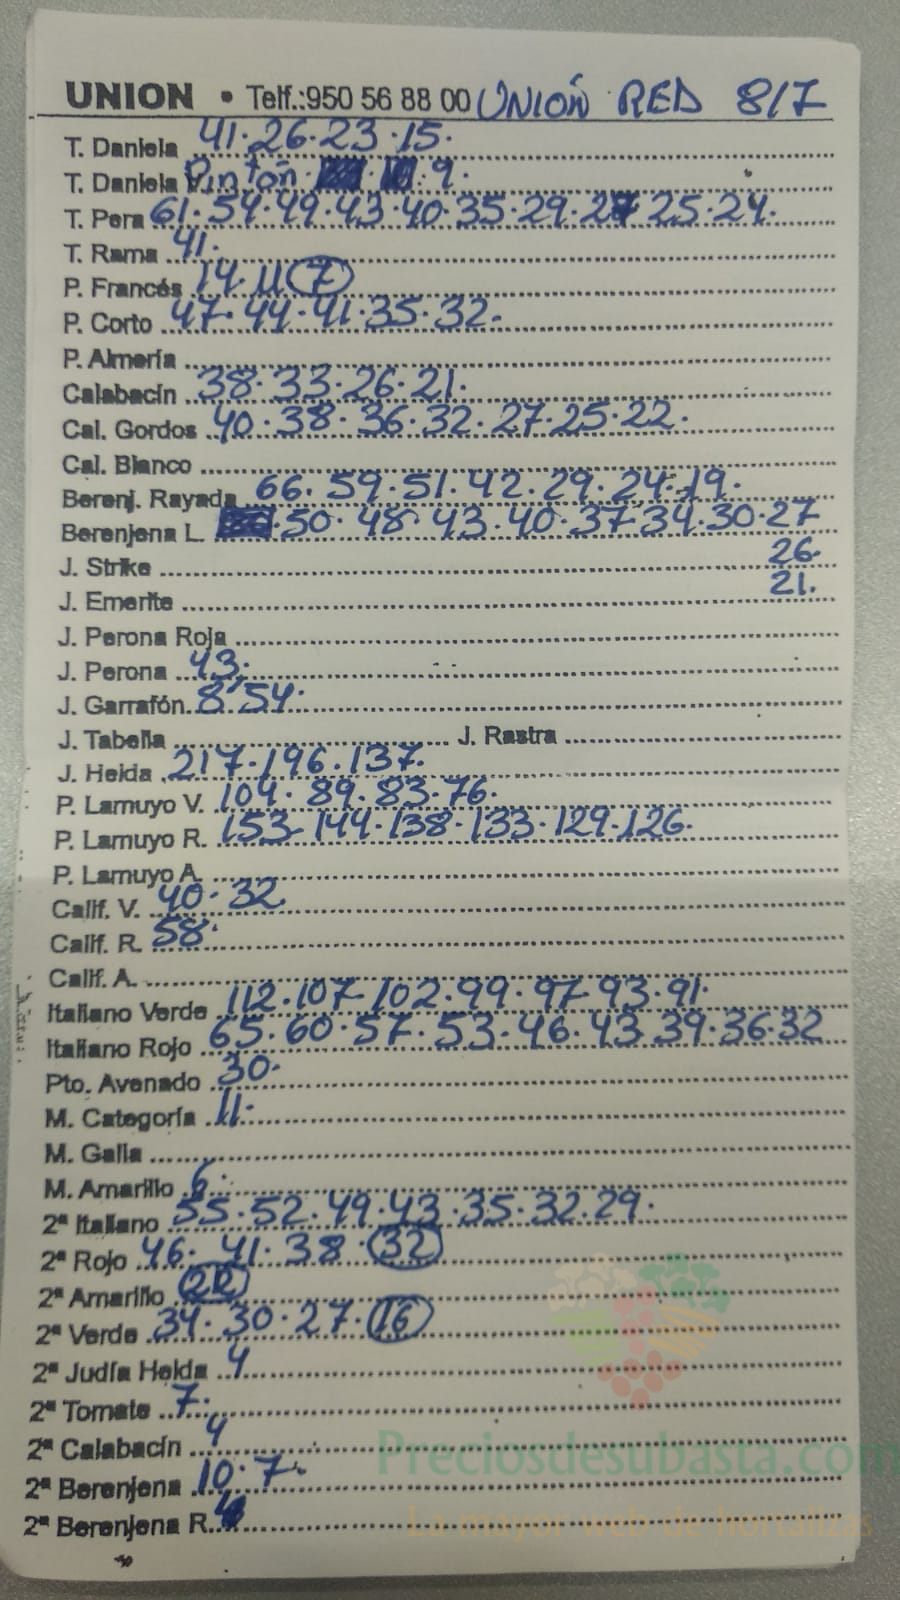 UNION • Telf.:950 56 88 00 UNIÓN RED 8/7
T. Daniela 41·26·23·15·
T. Daniela Pintón 9·
T. Pera 61·54·49·43·40·35·29·27 25·24·
T. Rama 41·
P. Francés 14·11 7
P. Corto 47·44·41·35·32·
P. Almería
Calabacín 38·33·26·21·
Cal. Gordos 40·38·36·32·27·25·22·
Cal. Blanco
Berenj. Rayada 66·59·51·42·29·24·19·
Berenjena L. 50·48·43·40·37·34·30·27
J. Strike 26·
J. Emerite 21·
J. Perona Roja
J. Perona 43·
J. Garrafón 8'54·
J. Tabella J. Rastra
J. Helda 217·196·137·
P. Lamuyo V. 104·89·83·76·
P. Lamuyo R. 153·144·138·133·129·126·
P. Lamuyo A.
Calif. V. 40·32
Calif. R. 58·
Calif. A.
Italiano Verde 112·107·102·99·97·93·91·
Italiano Rojo 65·60·57·53·46·43·39·36·32
Pto. Avenado 30·
M. Categoría 11·
M. Galia
M. Amarillo 6·
2ª Italiano 55·52·49·43·35·32·29·
2ª Rojo 46·41·38·32
2ª Amarillo 22
2ª Verde 34·30·27·16
2ª Judía Helda 4
2ª Tomate 7·
2ª Calabacín 4
2ª Berenjena 10·7·
2ª Berenjena R.
Preciosdesubasta.com
La mayor web de hortalizas